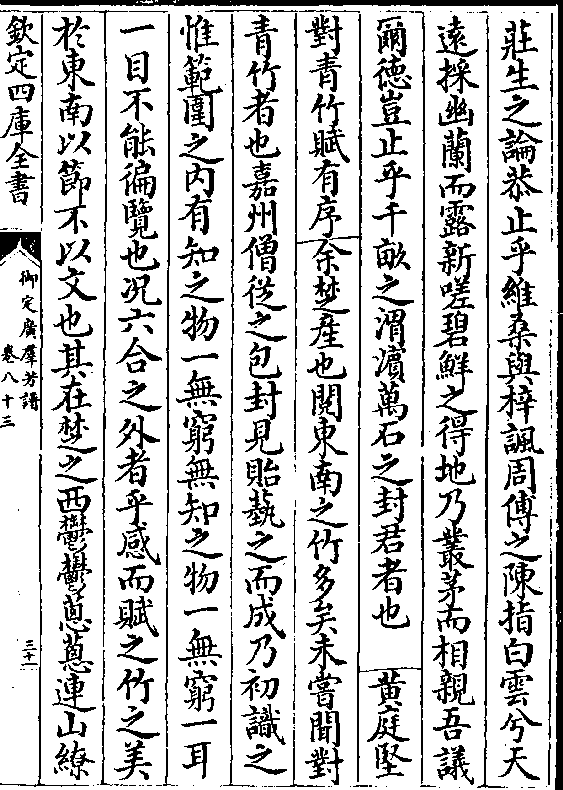 莊生之論恭止乎維桑與梓諷周傅之陳指白雲兮天
遠採幽蘭而露新嗟碧鮮之得地乃叢茅而相親吾議
爾德豈止乎千畝之渭濵萬石之封君者也 黄庭堅
對青竹賦有序余楚産也閱東南之竹多矣未嘗聞對
青竹者也嘉州僧從之包封見貽蓺之而成乃初識之
惟範圍之内有知之物一無窮無知之物一無窮一耳
一目不能徧覽也况六合之外者乎感而賦之竹之美
於東南以節不以文也其在楚之西鬱鬱蔥蔥連山繚
欽定四庫全書
御定廣羣芳譜
卷八十三
三十一